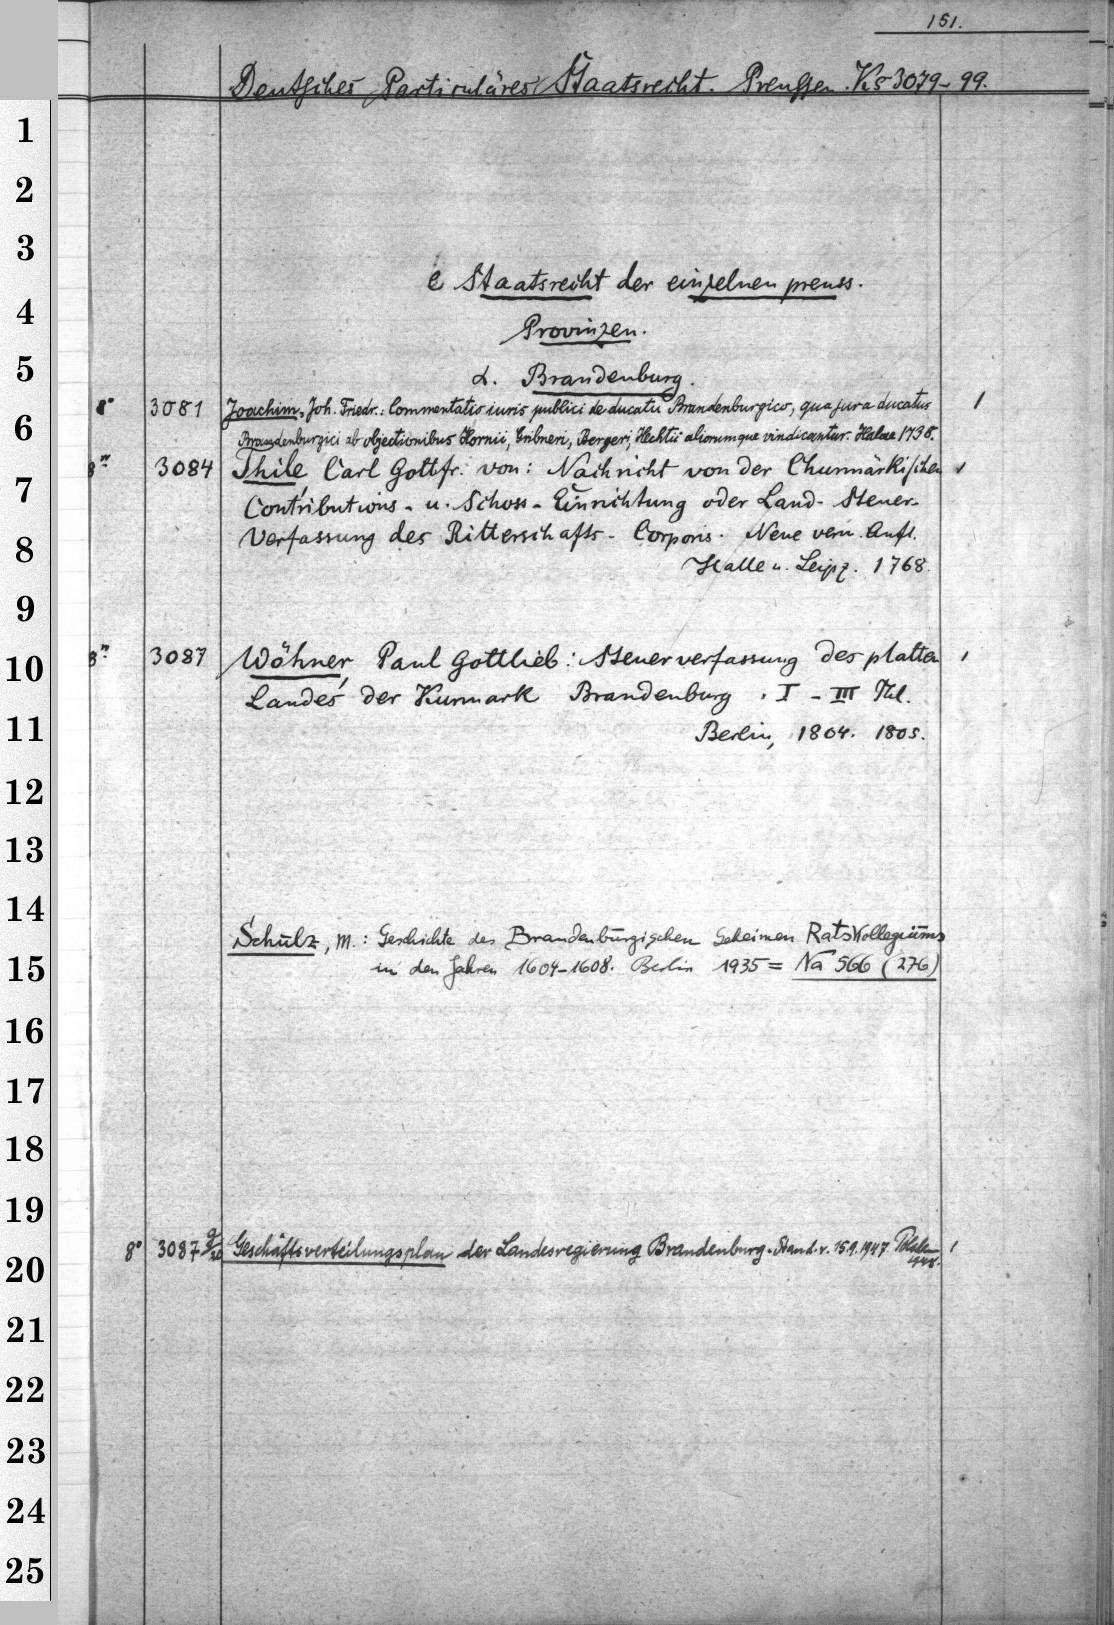 151.
Deutsches Particuläres Staatsrecht. Preussen. Ks 3079-99.
e Staatsrecht der einzelnen preuss.
Provinzen.
α. Brandenburg.
8° 3081 Joachim, Joh. Friedr.: Commentatio iuris publici de ducatu Brandenburgico, qua jura ducatus 1
Brandenburgici ab objectionibus Hornii, Gribneri, Bergeri, Hechtii aliorumque vindicantur. Halae 1738.
3084 Thile, Carl Gottfr. von: Nachricht von der Churmärkischen 1
Contributions- u. Schoss-Einrichtung oder Land-Steuer-
Verfassung des Ritterschafts-Corporis. Neue verm. Aufl.
Halle u. Leipz. 1768.
3087 Wöhner, Paul Gottlieb: Steuerverfassung des platten 1
Landes der Kurmark Brandenburg. I - III Thl.
Berlin, 1804. 1805.
Schulz, M.: Geschichte des Brandenburgischen Geheimen Ratskollegiums
in den Jahren 1604-1608. Berlin 1935 = Na 566 (276)
8° 3087 Geschäftsverteilungsplan der Landesregierung Brandenburg. Stand. v. 15.9.1947. 1
1
2
3
4
5
6
7
8
9
10
11
12
13
14
15
16
17
18
19
20
21
22
23
24
25